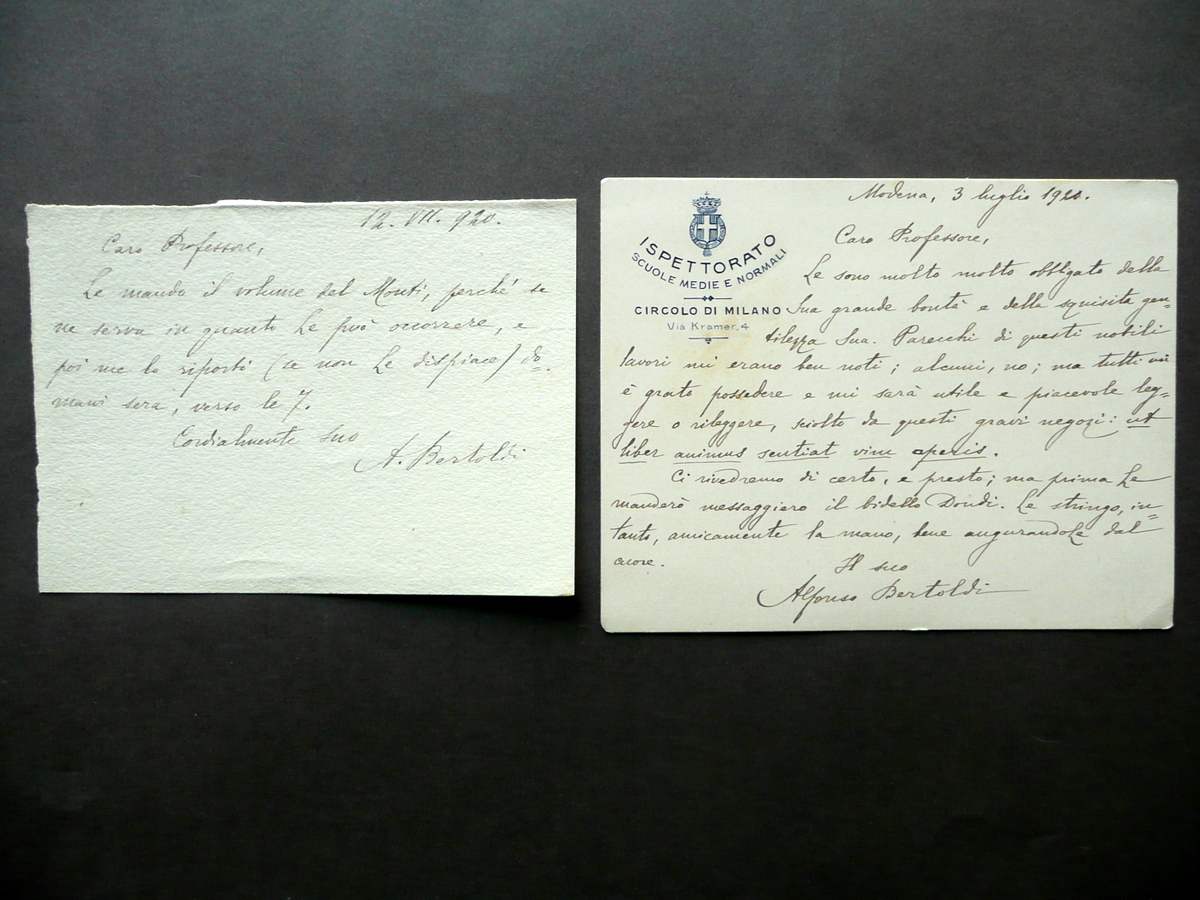 12. VII. 920.
Caro Professore,
Le mando il volume del Monti, perché se
ne serva in quanto Le può occorrere, e
poi me lo riporti (se non Le dispiace) do=
mani sera, verso le 7.
Cordialmente suo
A. Bertoldi
ISPETTORATO
SCUOLE MEDIE E NORMALI
CIRCOLO DI MILANO
Via Kramer, 4
Modena, 3 luglio 1920.
Caro Professore,
Le sono molto molto obbligato della
Sua grande bontà e della squisita gen=
tilezza Sua. Parecchi di questi nobili
lavori mi erano ben noti; alcuni, no; ma tutti mi
è grato possedere e mi sarà utile e piacevole leg=
gere o rileggere, sciolto da questi gravi negozi: ut
liber animus sentiat vim operis.
Ci rivedremo di certo, e presto; ma prima Le
manderò messaggiero il bidello Dondi. Le stringo, in=
tanto, amicamente la mano, bene augurandoLe dal
cuore.
Il suo
Alfonso Bertoldi